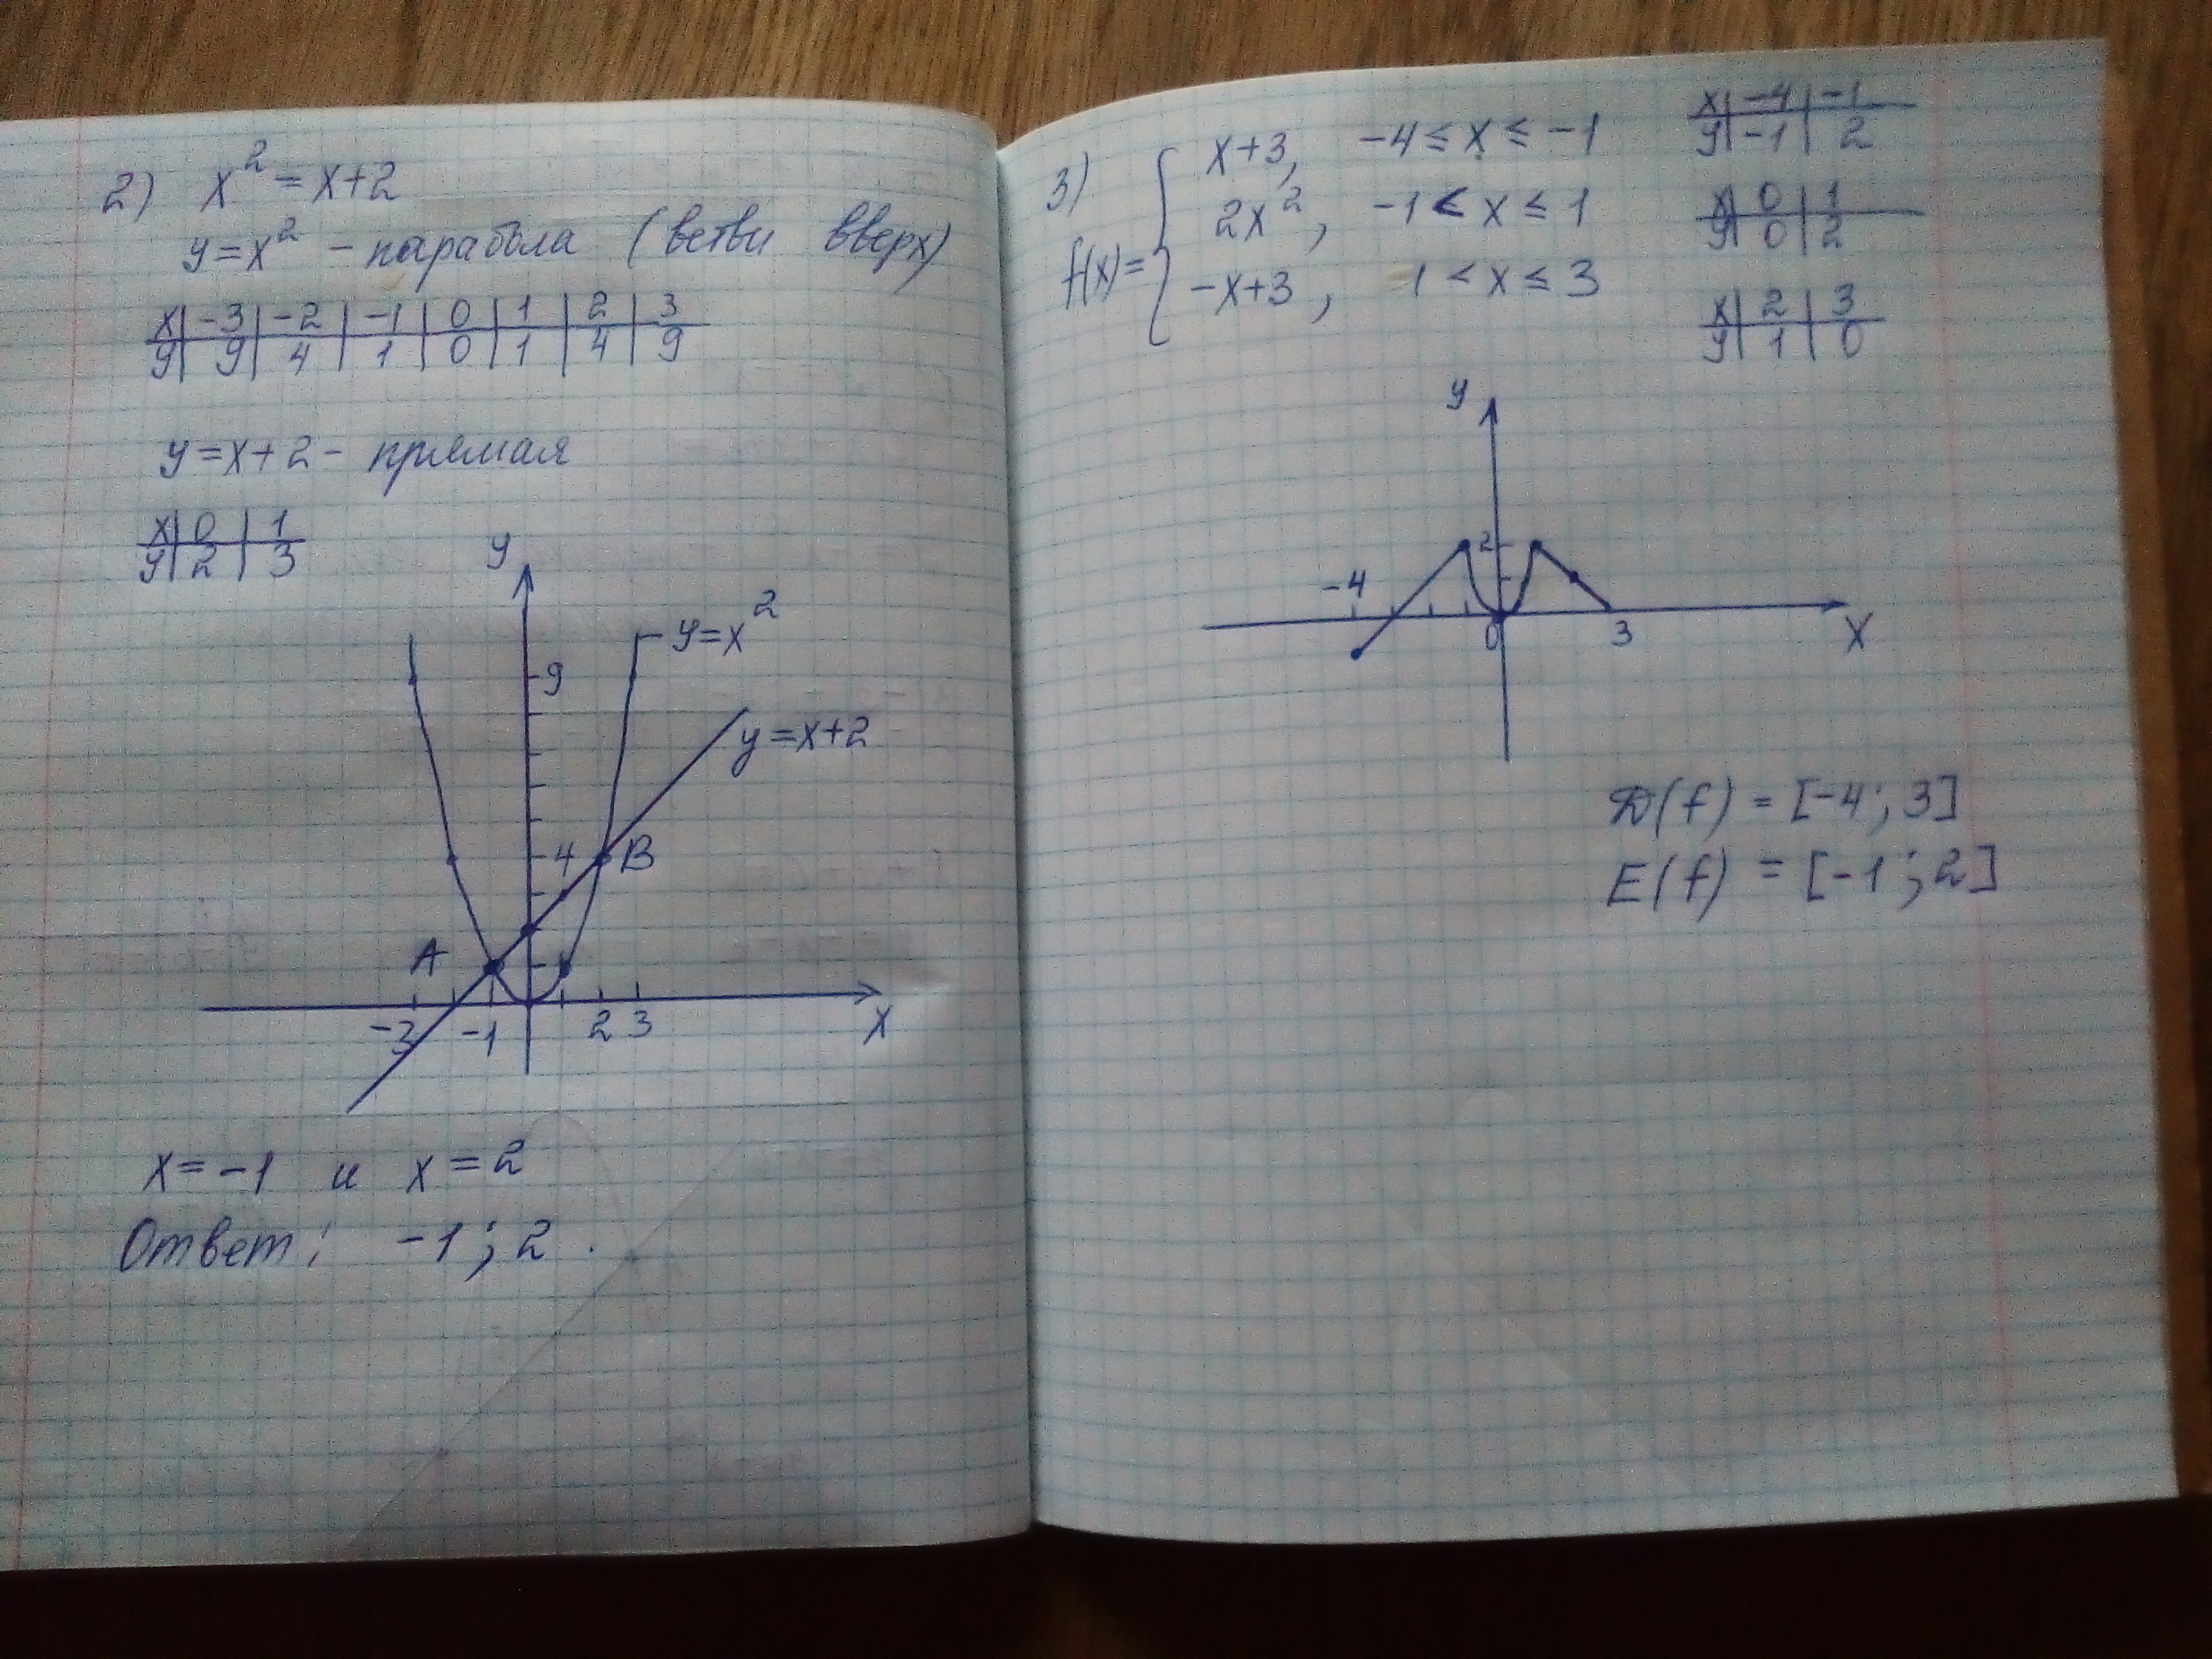 2) x² = x+2
y=x² – парабола (ветви вверх)
x | -3 | -2 | -1 | 0 | 1 | 2 | 3
y | 9 | 4 | 1 | 0 | 1 | 4 | 9
y=x+2 – прямая
x | 0 | 1
y | 2 | 3
y
y=x²
9
y=x+2
4 B
A
-3 -1 2 3 x
x=-1 и x=2
Ответ: -1; 2.
3) f(x)= { x+3, -4 ≤ x ≤ -1
2x², -1 < x ≤ 1
-x+3, 1 < x ≤ 3
x | -4 | -1
y | -1 | 2
x | 0 | 1
y | 0 | 2
x | 2 | 3
y | 1 | 0
y
2
-4
0 3 x
D(f) = [-4; 3]
E(f) = [-1; 2]